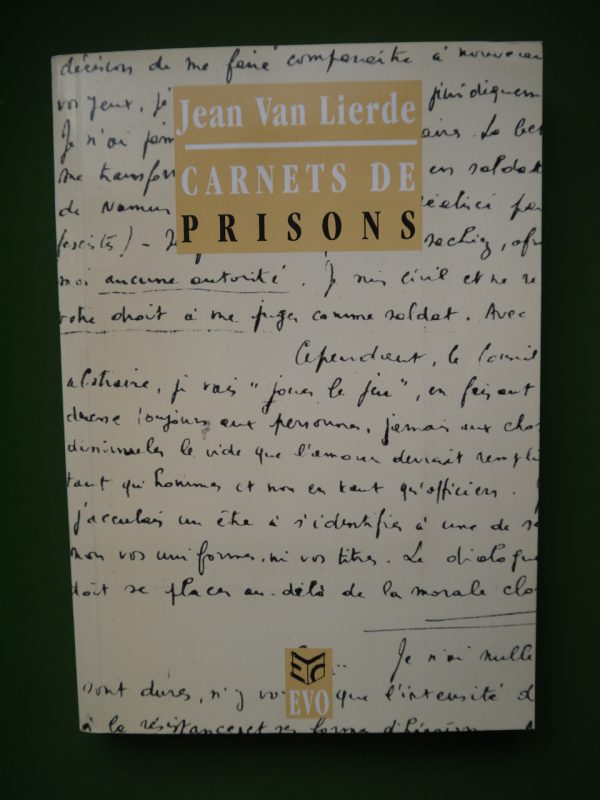 décision de me faire comparaître à nouveau
vos yeux, j'é
Jean Van Lierde
juridiquem
Je n'ai jam
aires. Le bel
me transfor
CARNETS DE
en soldat
de Namur
PRISONS
fascistes) -
sachiez,
moi aucune autorité. Je suis civil et ne re
votre droit à me juger comme soldat. Avec
Cependant, le
abstraire, je vais "jouer le jeu", en faisant
dresse toujours aux personnes, jamais aux cho
dissimuler le vide que l'amour devrait rempli
tant qu'hommes et non en tant qu'officiers.
j'acculais un être à s'identifier à une de s
non vos uniformes, ni vos titres. Le dialogue
doit se placer au-delà de la morale clo
Je n'ai nulle
sont dures, n'y vo que l'intensité d
EVO
à la résistance et sa forme d'